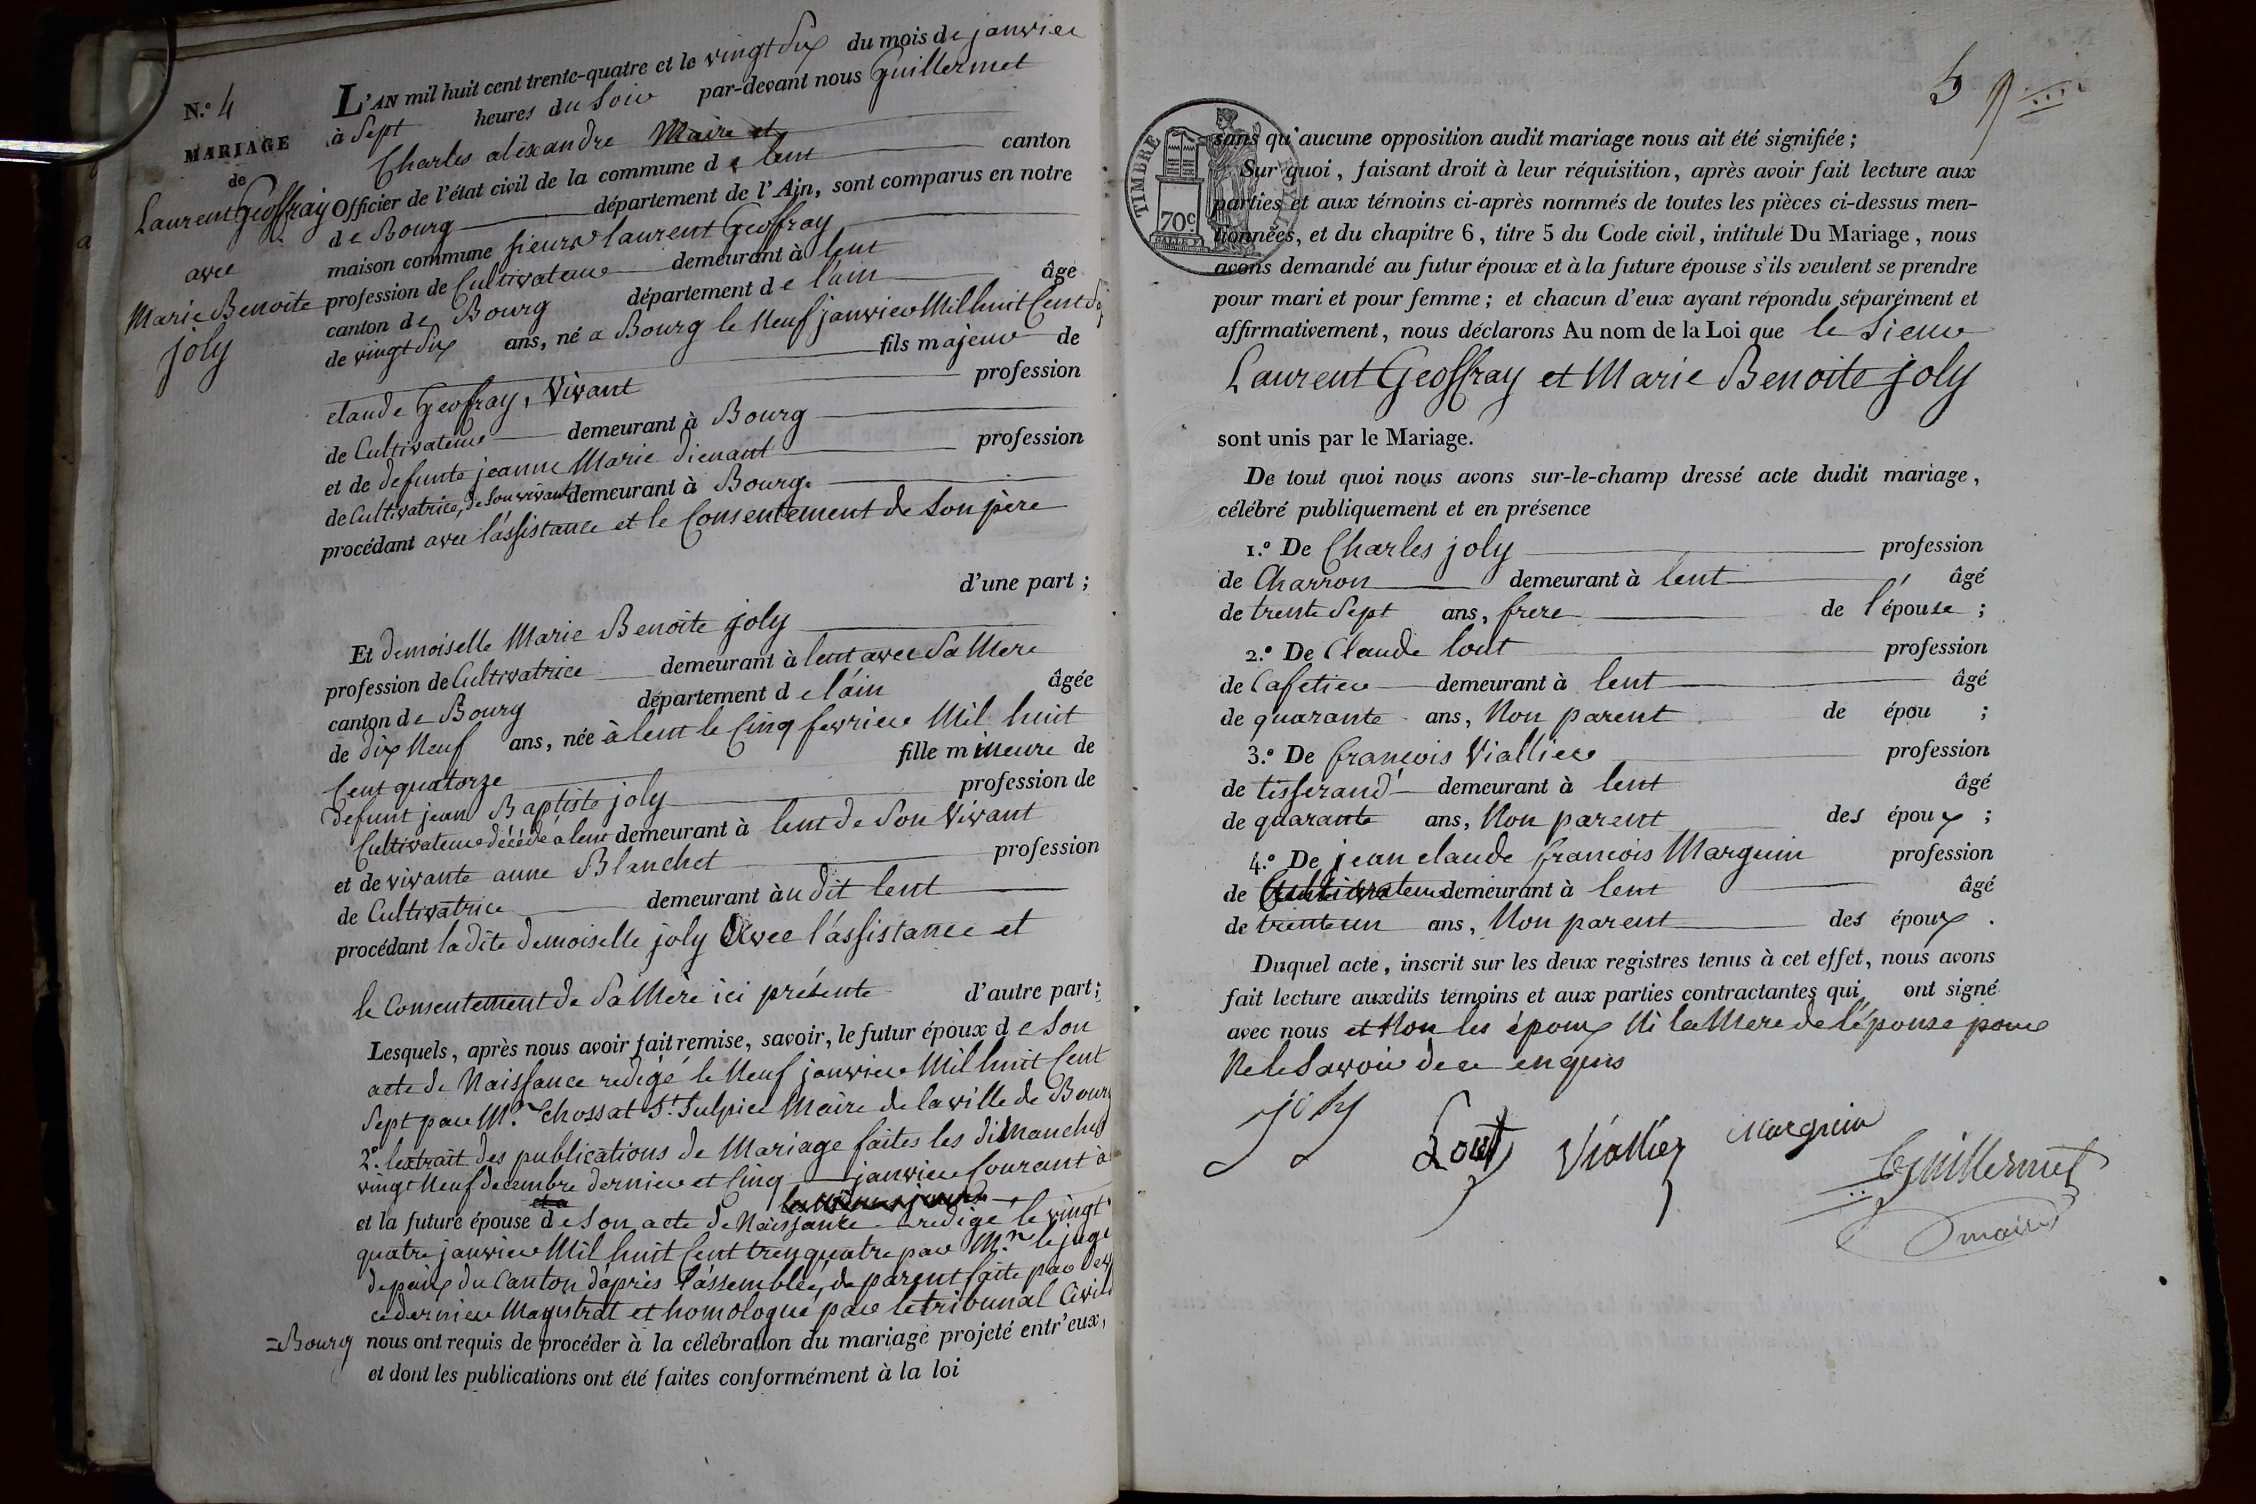 N.º 4
MARIAGE
de
Laurent Geoffray
avec
Marie Benoite
joly
L'AN mil huit cent trente-quatre et le vingt Six du mois de janvier
à Sept heures du Soir par-devant nous Guillermet
Charles alexandre Maire et
Officier de l'état civil de la commune de lent canton
de Bourg département de l'Ain, sont comparus en notre
maison commune sieur laurent Geoffray
profession de Cultivateur demeurant à lent
canton de Bourg département de l'ain âgé
de vingt Six ans, né a Bourg le Neuf janvier Mil huit Cent
fils majeur de
claude Geofray, Vivant profession
de Cultivateur demeurant à Bourg
et de defunte jeanne Marie profession
de Cultivatrice, de Son vivant demeurant à Bourg.
procédant avec l'assistance et le Consentement de Son père
d'une part ;
Et demoiselle Marie Benoite joly
profession de Cultivatrice demeurant à lent avec Sa Mere
canton de Bourg département de l'ain âgée
de dix Neuf ans, née à lent le Cinq fevrier Mil huit
Cent quatorze fille mineure de
defunt jean Baptiste joly profession de
Cultivateur décédé à lent demeurant à lent de Son Vivant
et de vivante anne Blanchet profession
de Cultivatrice demeurant àu dit lent
procédant la dite demoiselle joly Avec l'assistance et
le Consentement de Sa Mère ici présente d'autre part ;
Lesquels, après nous avoir fait remise, savoir, le futur époux de Son
acte de Naissance redigé le Neuf janvier Mil huit Cent
Sept par Mr. Chossat St. Sulpice Maire de la ville de Bourg
2º. lextrait des publications de Mariage faites les dimanches
vingt Neuf decembre dernier et Cinq janvier Courant à
et la future épouse de Son acte de Naissance redigé le vingt
quatre janvier Mil huit Cent trenquatre par Mr le juge
de paix du Canton d'après l'assemblée, de parent faite par
ce dernier Magistrat et homologué par le tribunal Civil
=Bourg nous ont requis de procéder à la célébration du mariage projeté entr'eux,
et dont les publications ont été faites conformément à la loi
5
TIMBRE
70c.
sans qu'aucune opposition audit mariage nous ait été signifiée ;
Sur quoi, faisant droit à leur réquisition, après avoir fait lecture aux
parties et aux témoins ci-après nommés de toutes les pièces ci-dessus men-
tionnées, et du chapitre 6, titre 5 du Code civil, intitulé Du Mariage, nous
avons demandé au futur époux et à la future épouse s'ils veulent se prendre
pour mari et pour femme ; et chacun d'eux ayant répondu séparément et
affirmativement, nous déclarons Au nom de la Loi que le Sieur
Laurent Geoffray et Marie Benoite joly
sont unis par le Mariage.
De tout quoi nous avons sur-le-champ dressé acte dudit mariage,
célébré publiquement et en présence
1.º De Charles joly profession
de Charron demeurant à lent âgé
de trente Sept ans, frere de l'épouse ;
2.º De Claude lout profession
de Cafetier demeurant à lent âgé
de quarante ans, Non parent de épou ;
3.º De francois Viallier profession
de tisserand demeurant à lent âgé
de quarante ans, Non parent des époux ;
4.º De jean claude francois Marguin profession
de Cultivateur demeurant à lent âgé
de trente un ans, Non parent des époux .
Duquel acte, inscrit sur les deux registres tenus à cet effet, nous avons
fait lecture auxdits témoins et aux parties contractantes qui ont signé
avec nous et Non les époux Ni la Mere de l'épouse pour
Ne le Savoir de ce enquis
joly
Lout
Viallier
Marguin
Guillermet
maire